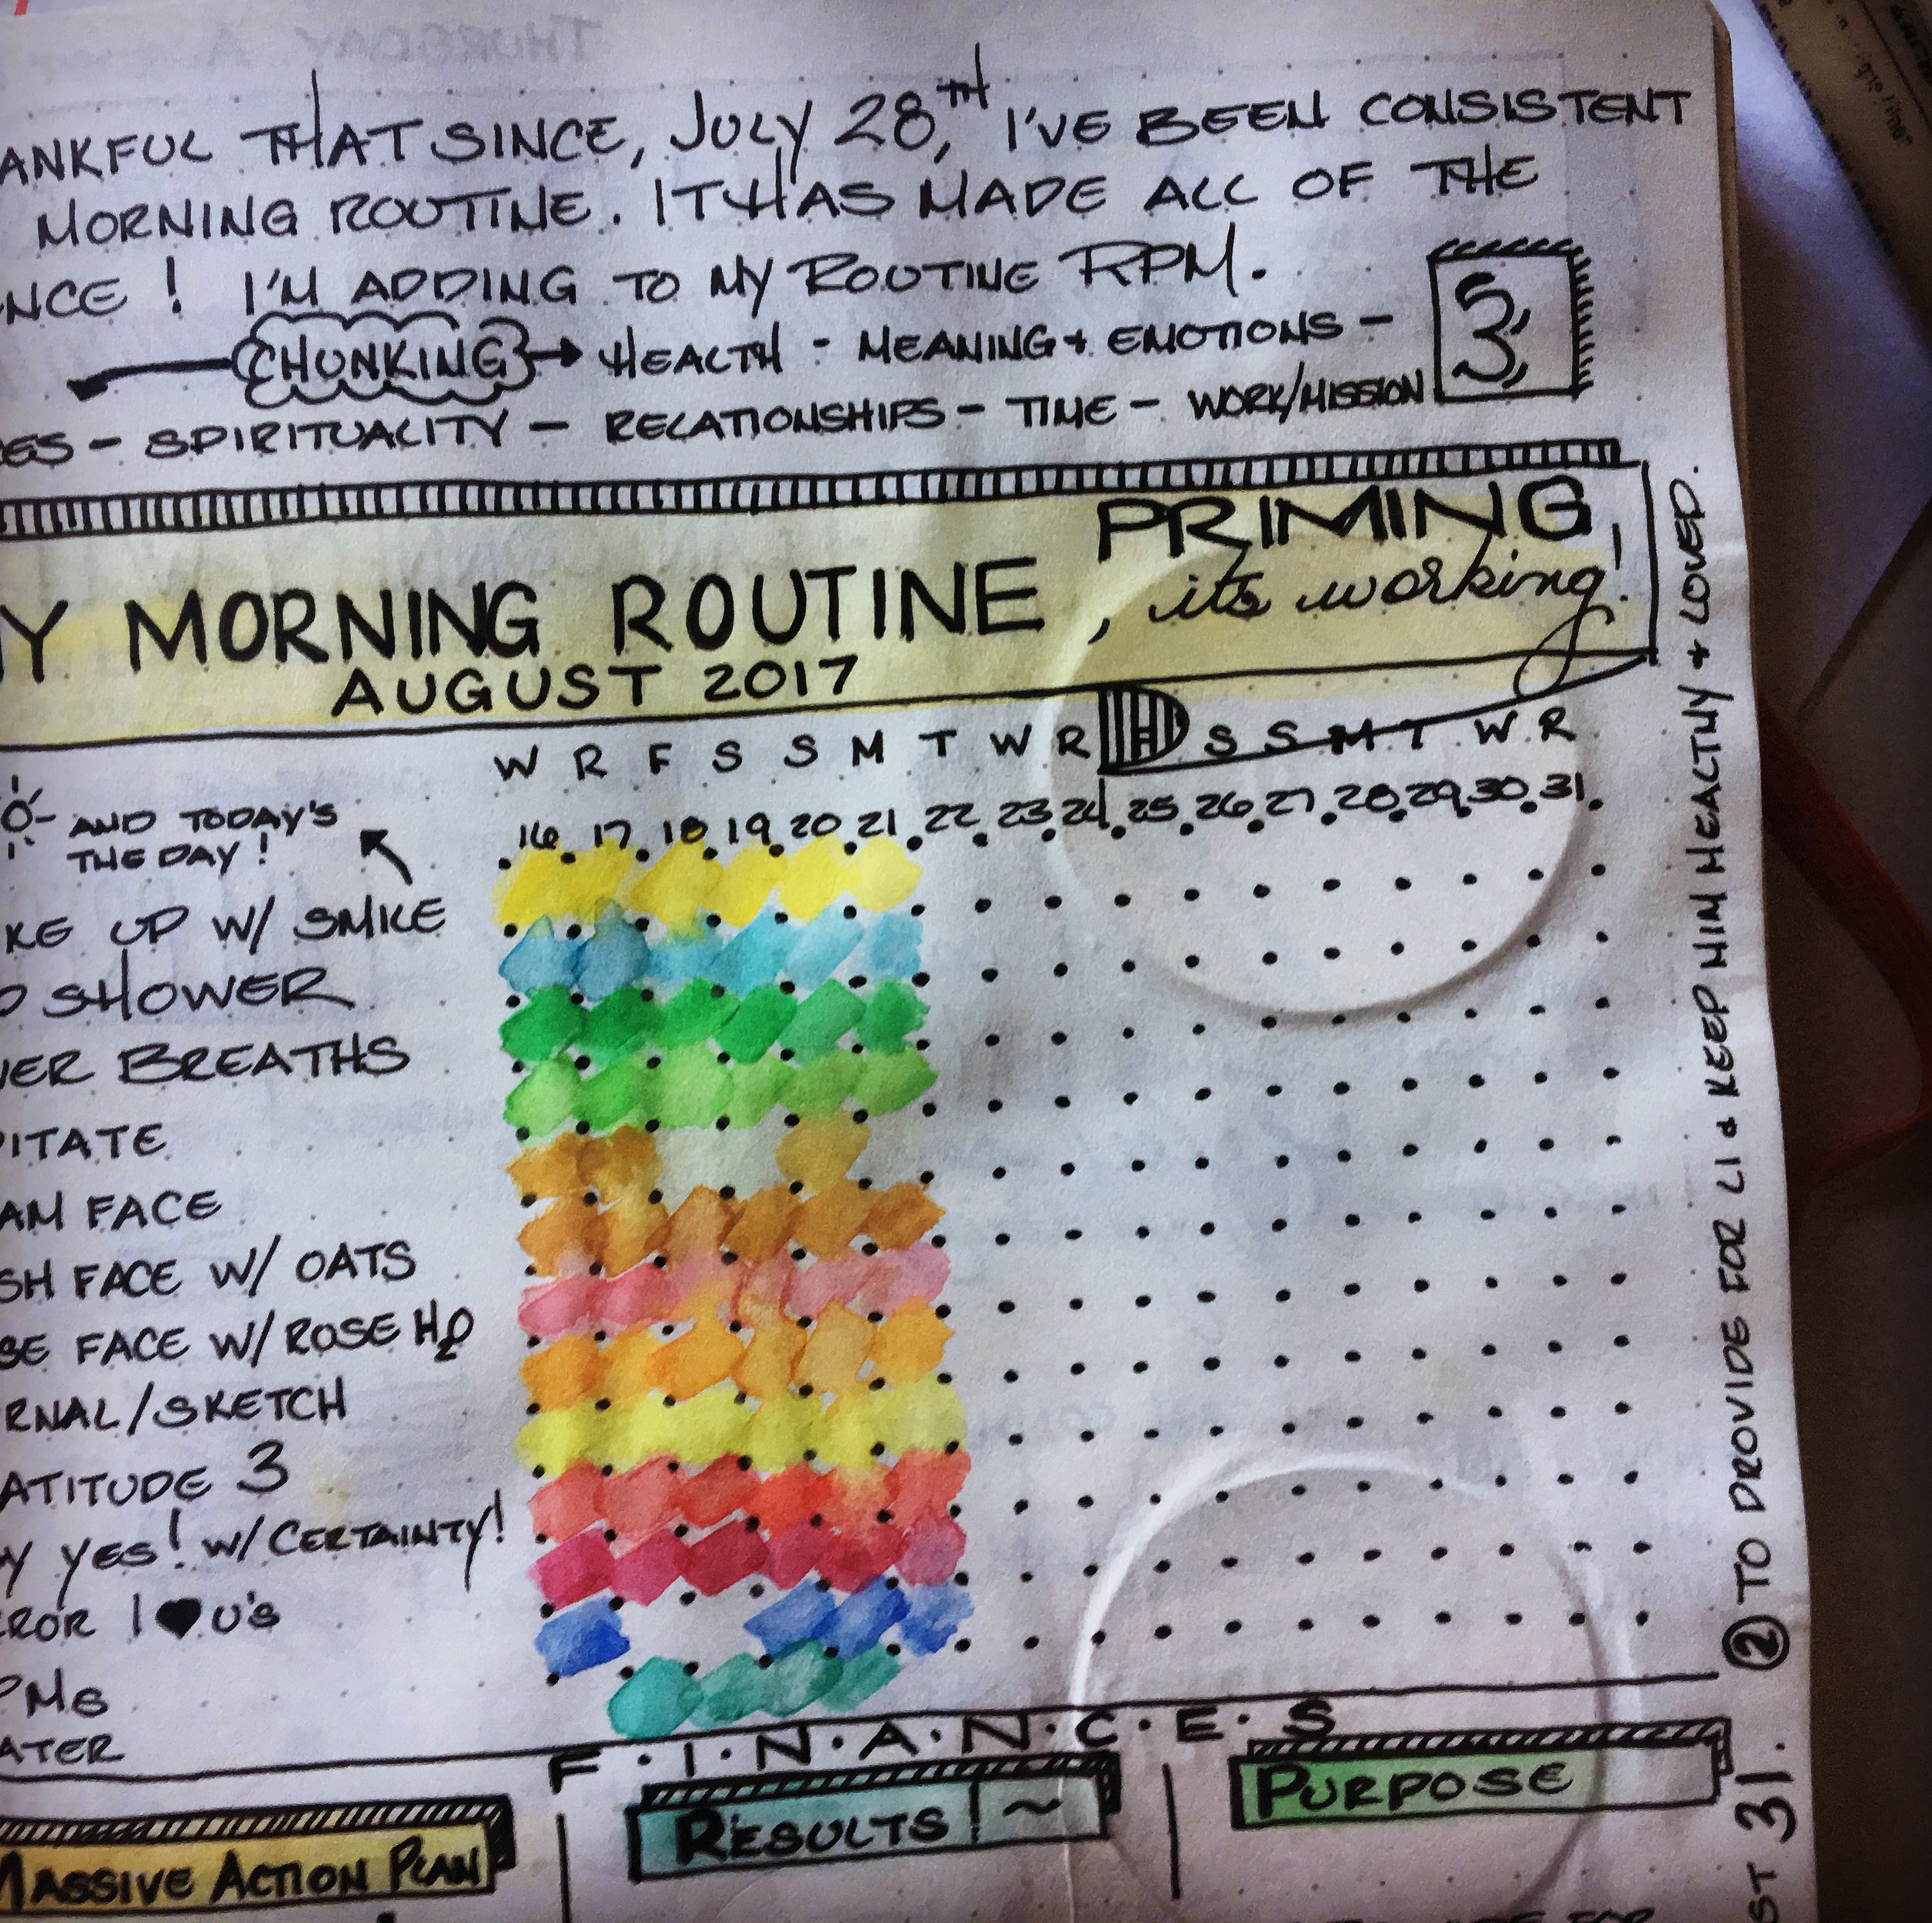 THURSDAY A
ANKFUL THAT SINCE, JULY 28TH, I'VE BEEN CONSISTENT
MORNING ROUTINE. IT HAS MADE ALL OF THE
NCE! I'M ADDING TO MY ROUTINE RPM.
CHUNKING → HEALTH - MEANING + EMOTIONS -
3
ES - SPIRITUALITY - RELATIONSHIPS - TIME - WORK/MISSION
PRIMING,
Y MORNING ROUTINE, its working!
AUGUST 2017
W R F S S M T W R S S M T W R
16 17 18 19 20 21 22 23 24 25 26 27 28 29 30 31
AND TODAY'S
THE DAY!
KE UP W/ SMILE
D SHOWER
WER BREATHS
ITATE
AM FACE
SH FACE W/ OATS
SE FACE W/ ROSE H2O
RNAL/SKETCH
ATITUDE 3
Y YES! W/ CERTAINTY!
ROR I ♥ U'S
PMS
ATER
F.I.N.A.N.C.E.S
MASSIVE ACTION PLAN
RESULTS ~
PURPOSE
② TO PROVIDE FOR LI & KEEP HIM HEALTHY + LOVED.
ST 31.